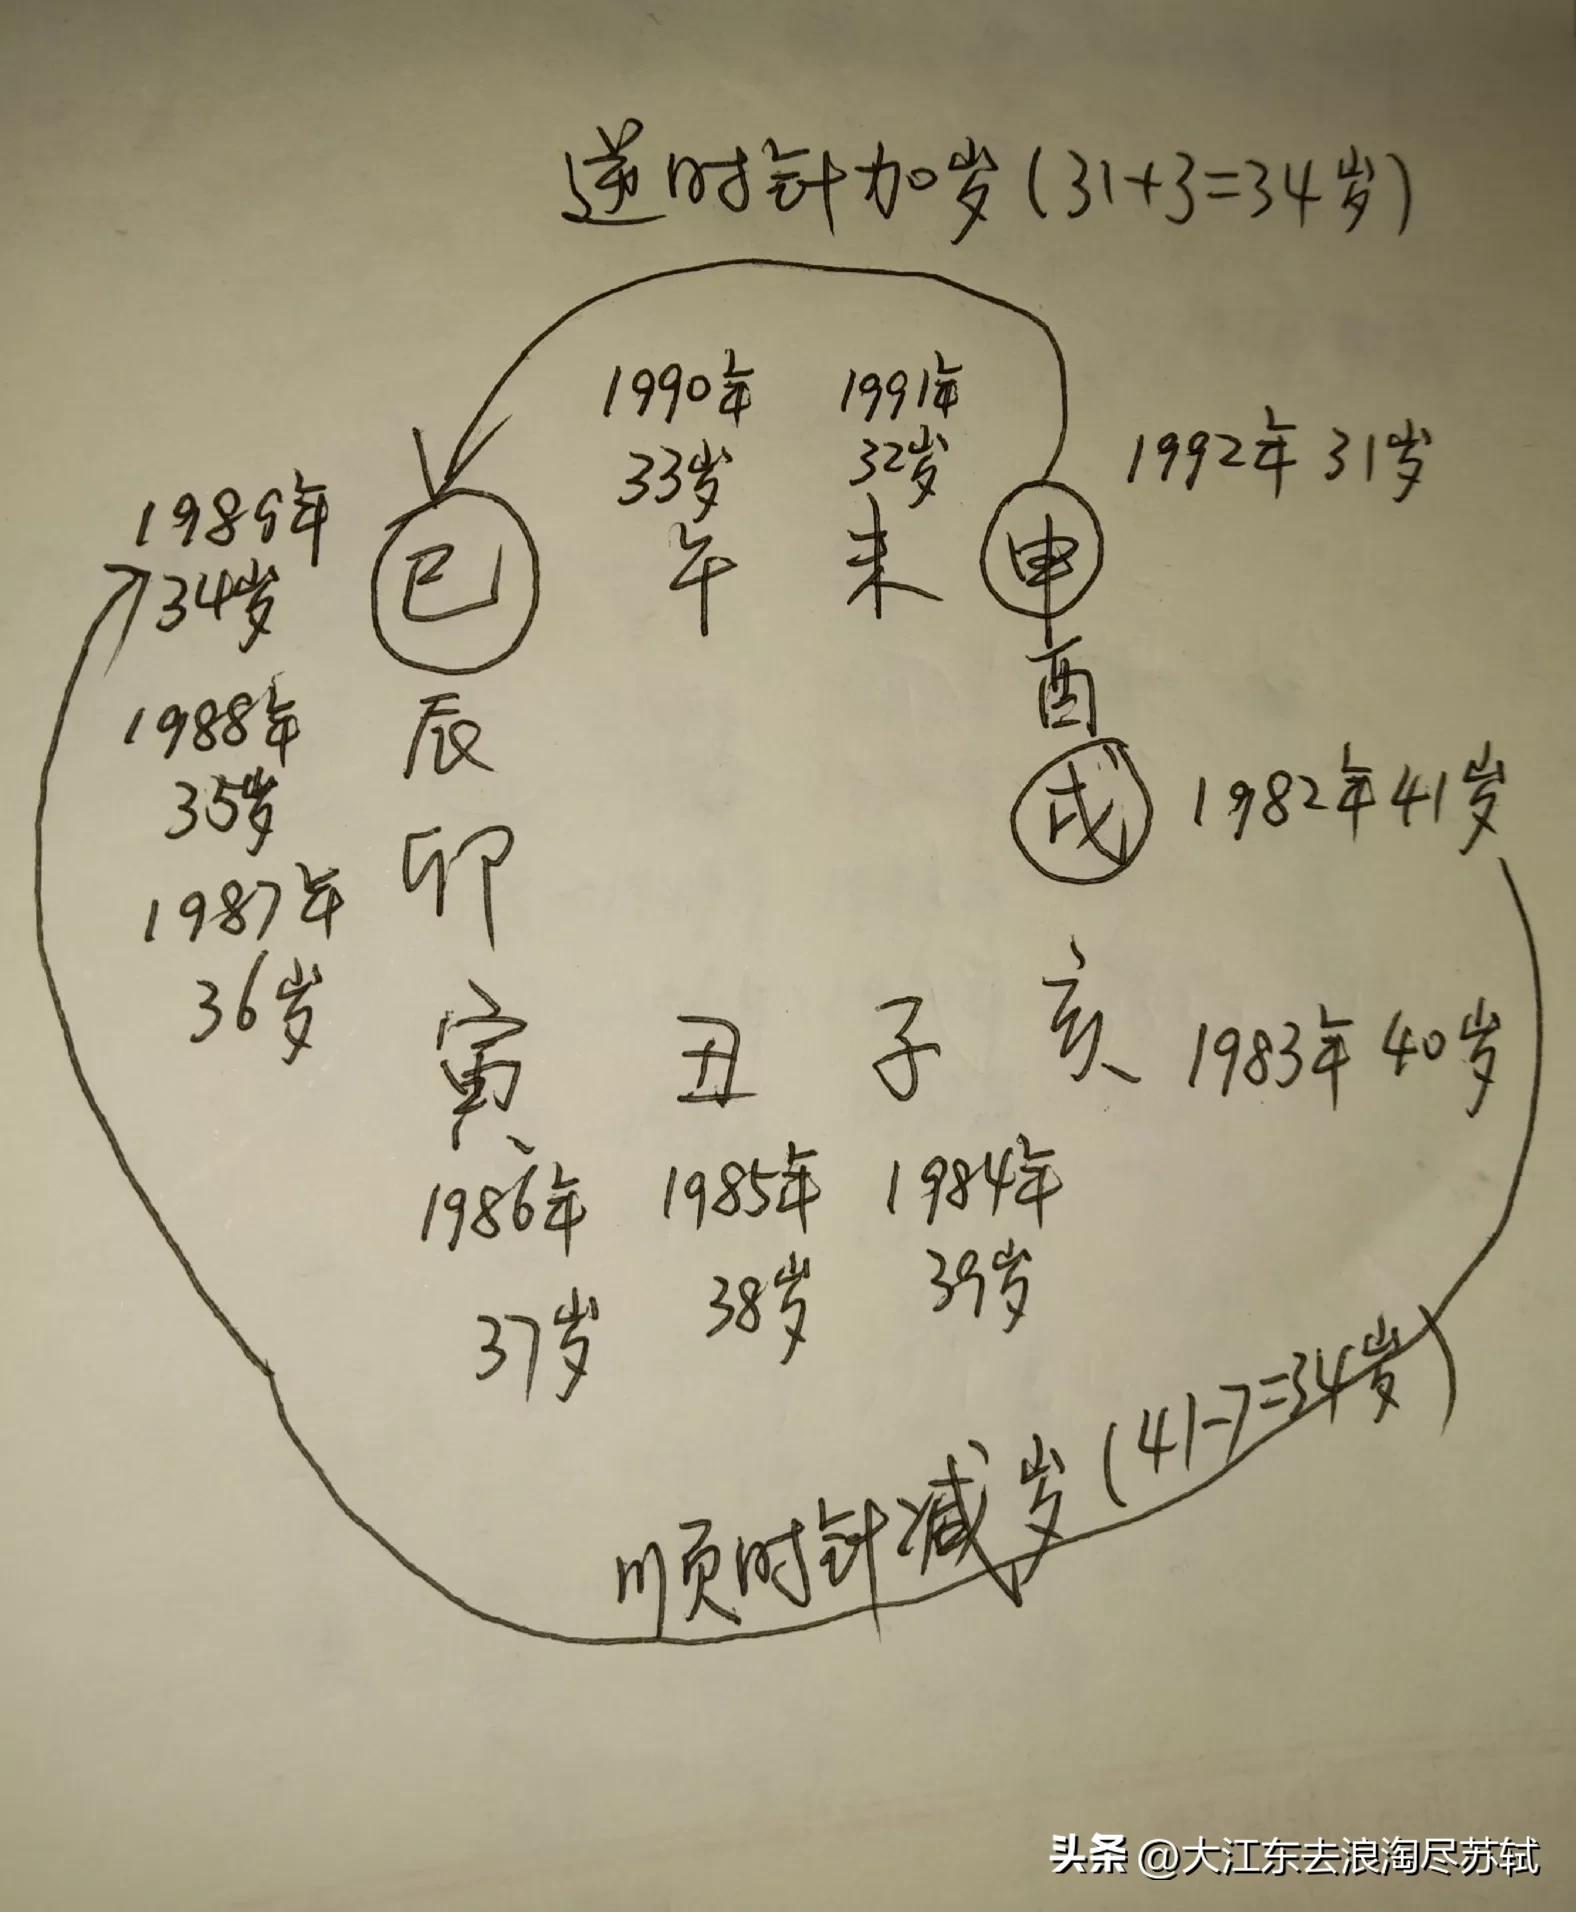 逆时针加岁(31+3=34岁)
1990年 1991年
33岁 32岁
1992年 31岁
1989年
34岁
巳 午 未 申
酉
1988年
35岁
辰
戌 1982年 41岁
1987年
36岁
卯
寅 丑 子 亥 1983年 40岁
1986年 1985年 1984年
37岁 38岁 39岁
顺时针减岁(41-7=34岁)
头条 @大江东去浪淘尽苏轼